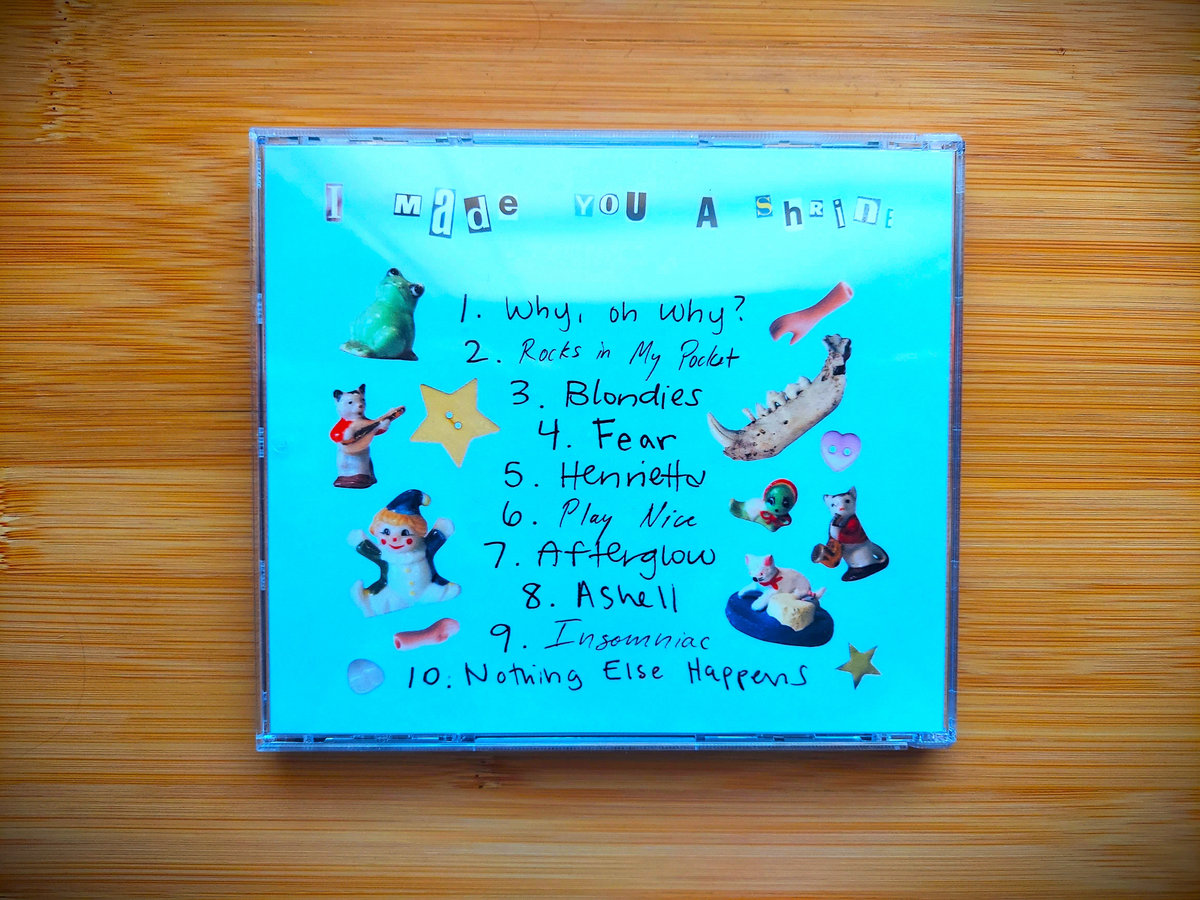 I made YOU A ShRinE
1. Why, oh Why?
2. Rocks in My Pocket
3. Blondies
4. Fear
5. Henrietta
6. Play Nice
7. Afterglow
8. Ashell
9. Insomniac
10. Nothing Else Happens